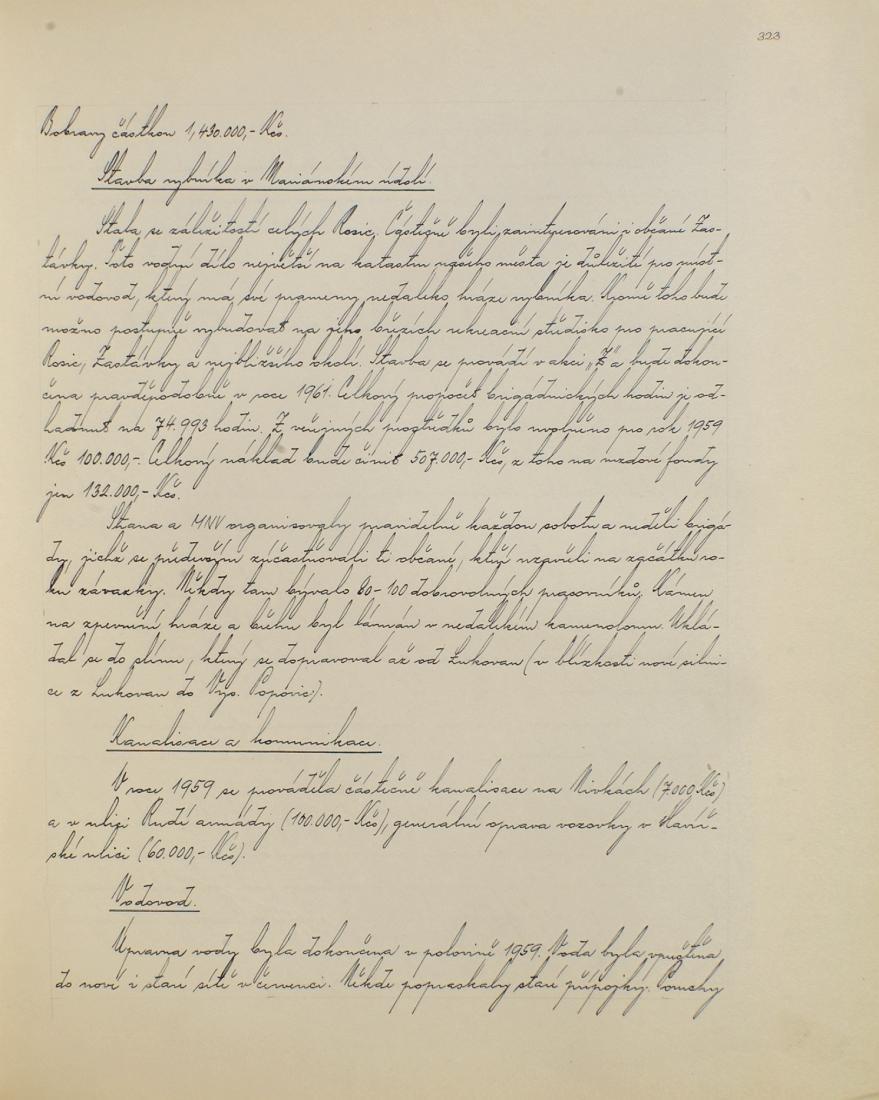 323
Bobravy částkou 1,430.000,- Kčs.
Stavba rybníka v Mariánském údolí.
Stala se záležitostí celých Rosic. Částečně byli zainteresováni i občané Zas-
távky. Toto vodní dílo největší na katastru našeho města je důležité pro míst-
ní vodovod, který má své prameny nedaleko hráze rybníka. Kromě toho bude
možno postupně vybudovat na jeho březích rekreační středisko pro pracující
Rosic, Zastávky a nejbližšího okolí. Stavba se provádí v akci „Z“ a bude dokon-
čena pravděpodobně v roce 1961. Celkový propočet brigádnických hodin je od-
hadnut na 74.993 hodin. Z veřejných prostředků bylo uvolněno pro rok 1959
Kčs 100.000,-. Celkový náklad bude činit 507.000,- Kčs, z toho na mzdové fondy
jen 132.000,- Kčs.
Strana a MNV organisovaly pravidelně každou sobotu a neděli brigá-
dy, jichž se především zúčastňovali ti občané, kteří uzavřeli na začátku ro-
ku závazky. Někdy tam bývalo 80-100 dobrovolných pracovníků. Kámen
na zpevnění hráze a břehu byl lámán v nedalekém kamenolomu. Uklá-
dal se do slínu, který se dopravoval až od Lukovan (v blízkosti nové silni-
ce z Lukovan do Vys. Popovic).
Kanalisace a komunikace.
V roce 1959 se prováděla částečně kanalisace na Nivkách (7.000 Kčs)
a v ulici Rudé armády (100.000,- Kčs), generální oprava vozovky v Havíř-
ské ulici (60.000,- Kčs).
Vodovod.
Úpravna vody byla dokončena v polovině 1959. Voda byla vpuštěna
do nové i staré sítě v červenci. Někde popraskaly staré přípojky. Poruchy